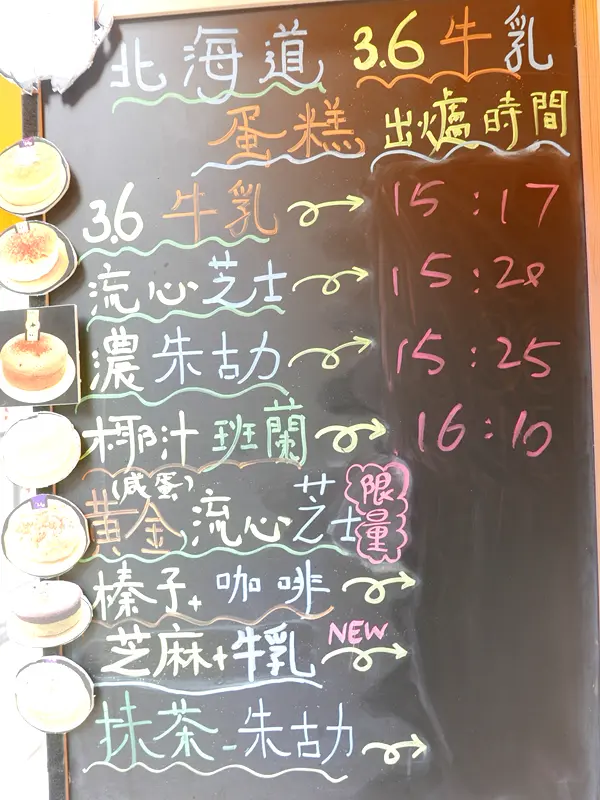 北海道 3.6牛乳
蛋糕 出爐時間
3.6 牛乳 → 15:17
流心芝士 → 15:20
濃朱古力 → 15:25
椰汁班蘭 → 16:10
(咸蛋)
黃金流心芝士 限量
榛子+咖啡 →
芝麻+牛乳 NEW →
抹茶-朱古力 →